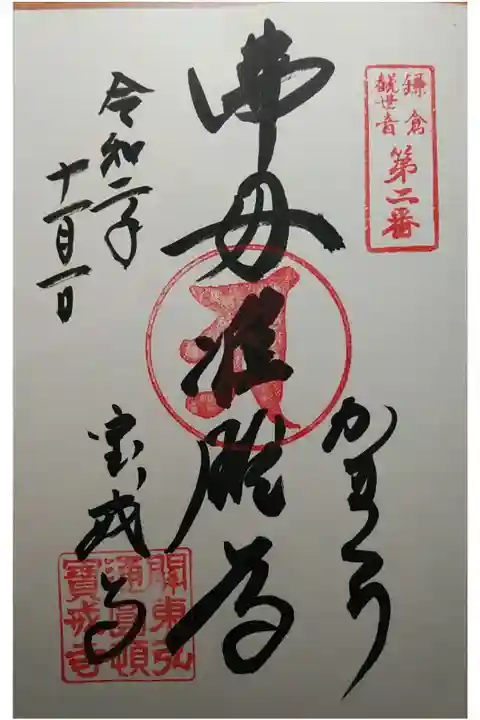 鎌倉
観世音
第二番
かまくら
佛母准胝尊
令和二年
十一月一日
宝戒寺
関東弘
通圓頓
寶戒寺